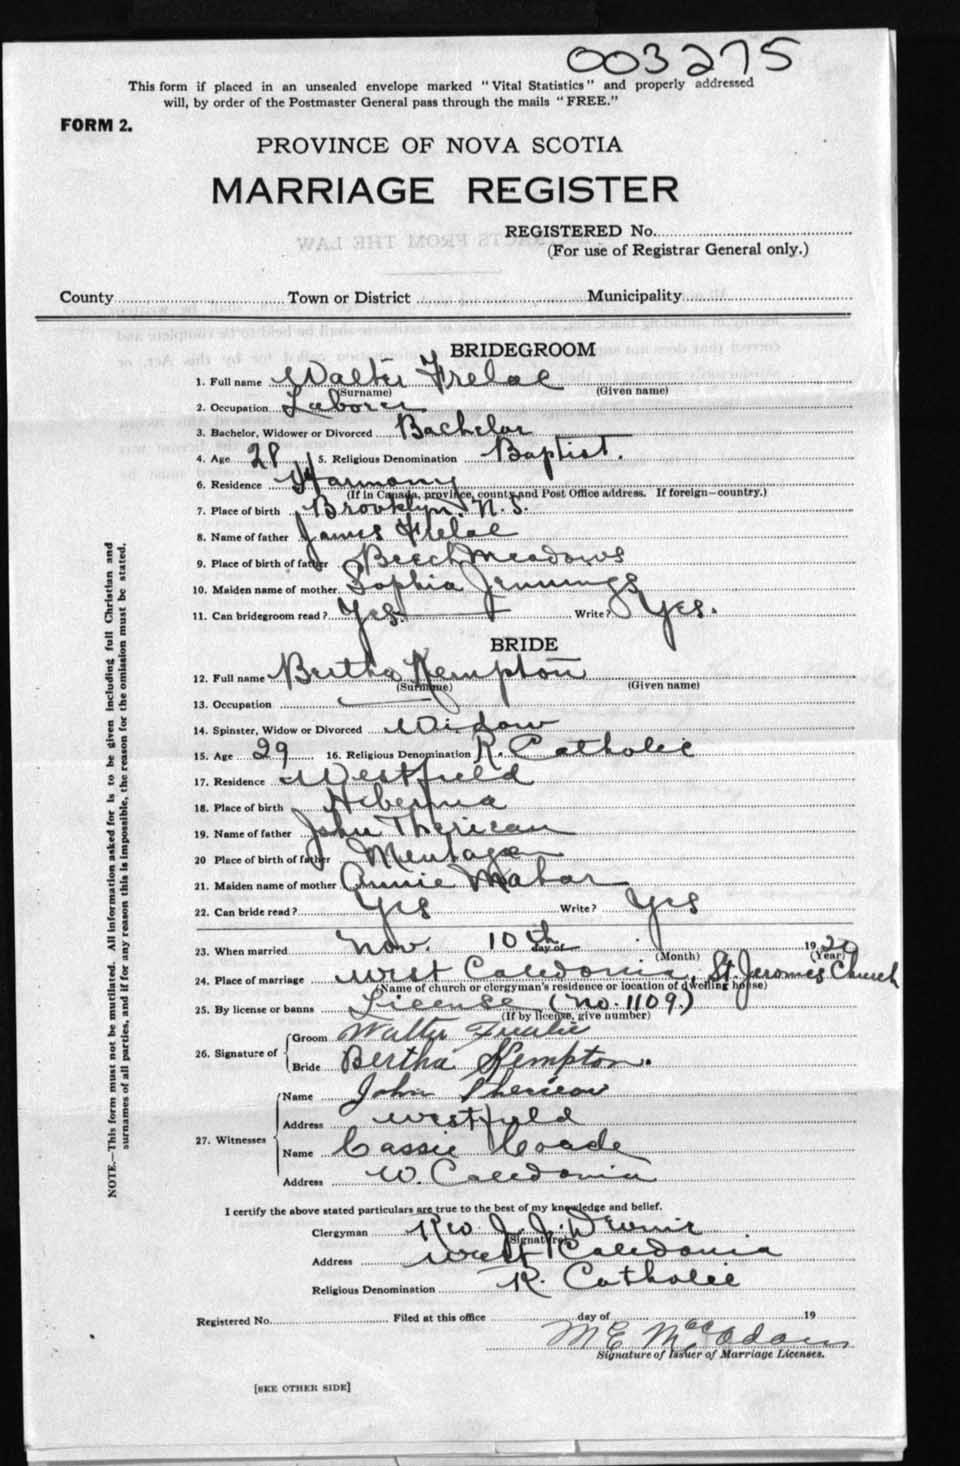 003275
This form if placed in an unsealed envelope marked "Vital Statistics" and properly addressed
will, by order of the Postmaster General pass through the mails "FREE."
FORM 2.
PROVINCE OF NOVA SCOTIA
MARRIAGE REGISTER
REGISTERED No.
(For use of Registrar General only.)
County Town or District Municipality
BRIDEGROOM
1. Full name Walter Frelae
(Surname) (Given name)
2. Occupation Laborer
3. Bachelor, Widower or Divorced Bachelor
4. Age 28 5. Religious Denomination Baptist.
6. Residence Harmony
(If in Canada, province, county and Post Office address. If foreign—country.)
7. Place of birth Brooklyn N.S.
8. Name of father James Frelae
9. Place of birth of father Beech Meadows
10. Maiden name of mother Sophia Jennings
11. Can bridegroom read? Yes. Write? Yes.
BRIDE
12. Full name Bertha Kempton
(Surname) (Given name)
13. Occupation
14. Spinster, Widow or Divorced Widow
15. Age 29 16. Religious Denomination R. Catholic
17. Residence Westfield
18. Place of birth Hibernia
19. Name of father John
20 Place of birth of father
21. Maiden name of mother Annie Mahar
22. Can bride read? Yes Write? Yes
23. When married Nov. 10th day of 1920
(Month) (Year)
24. Place of marriage West Caledonia, St. Jeromes Church
(Name of church or clergyman's residence or location of dwelling house)
25. By license or banns License (No. 1109.)
(If by license, give number)
26. Signature of Groom Walter
Bride Bertha Kempton.
27. Witnesses Name John
Address Westfield
Name Cassie Coade
Address W. Caledonia
I certify the above stated particulars are true to the best of my knowledge and belief.
Clergyman Rev. J. J.
(Signature)
Address West Caledonia
Religious Denomination R. Catholic
Registered No. Filed at this office day of 19
M E McAdams
Signature of Issuer of Marriage Licenses.
[SEE OTHER SIDE]
NOTE.—This form must not be mutilated. All information asked for is to be given including full Christian and
surnames of all parties, and if for any reason this is impossible, the reason for the omission must be stated.